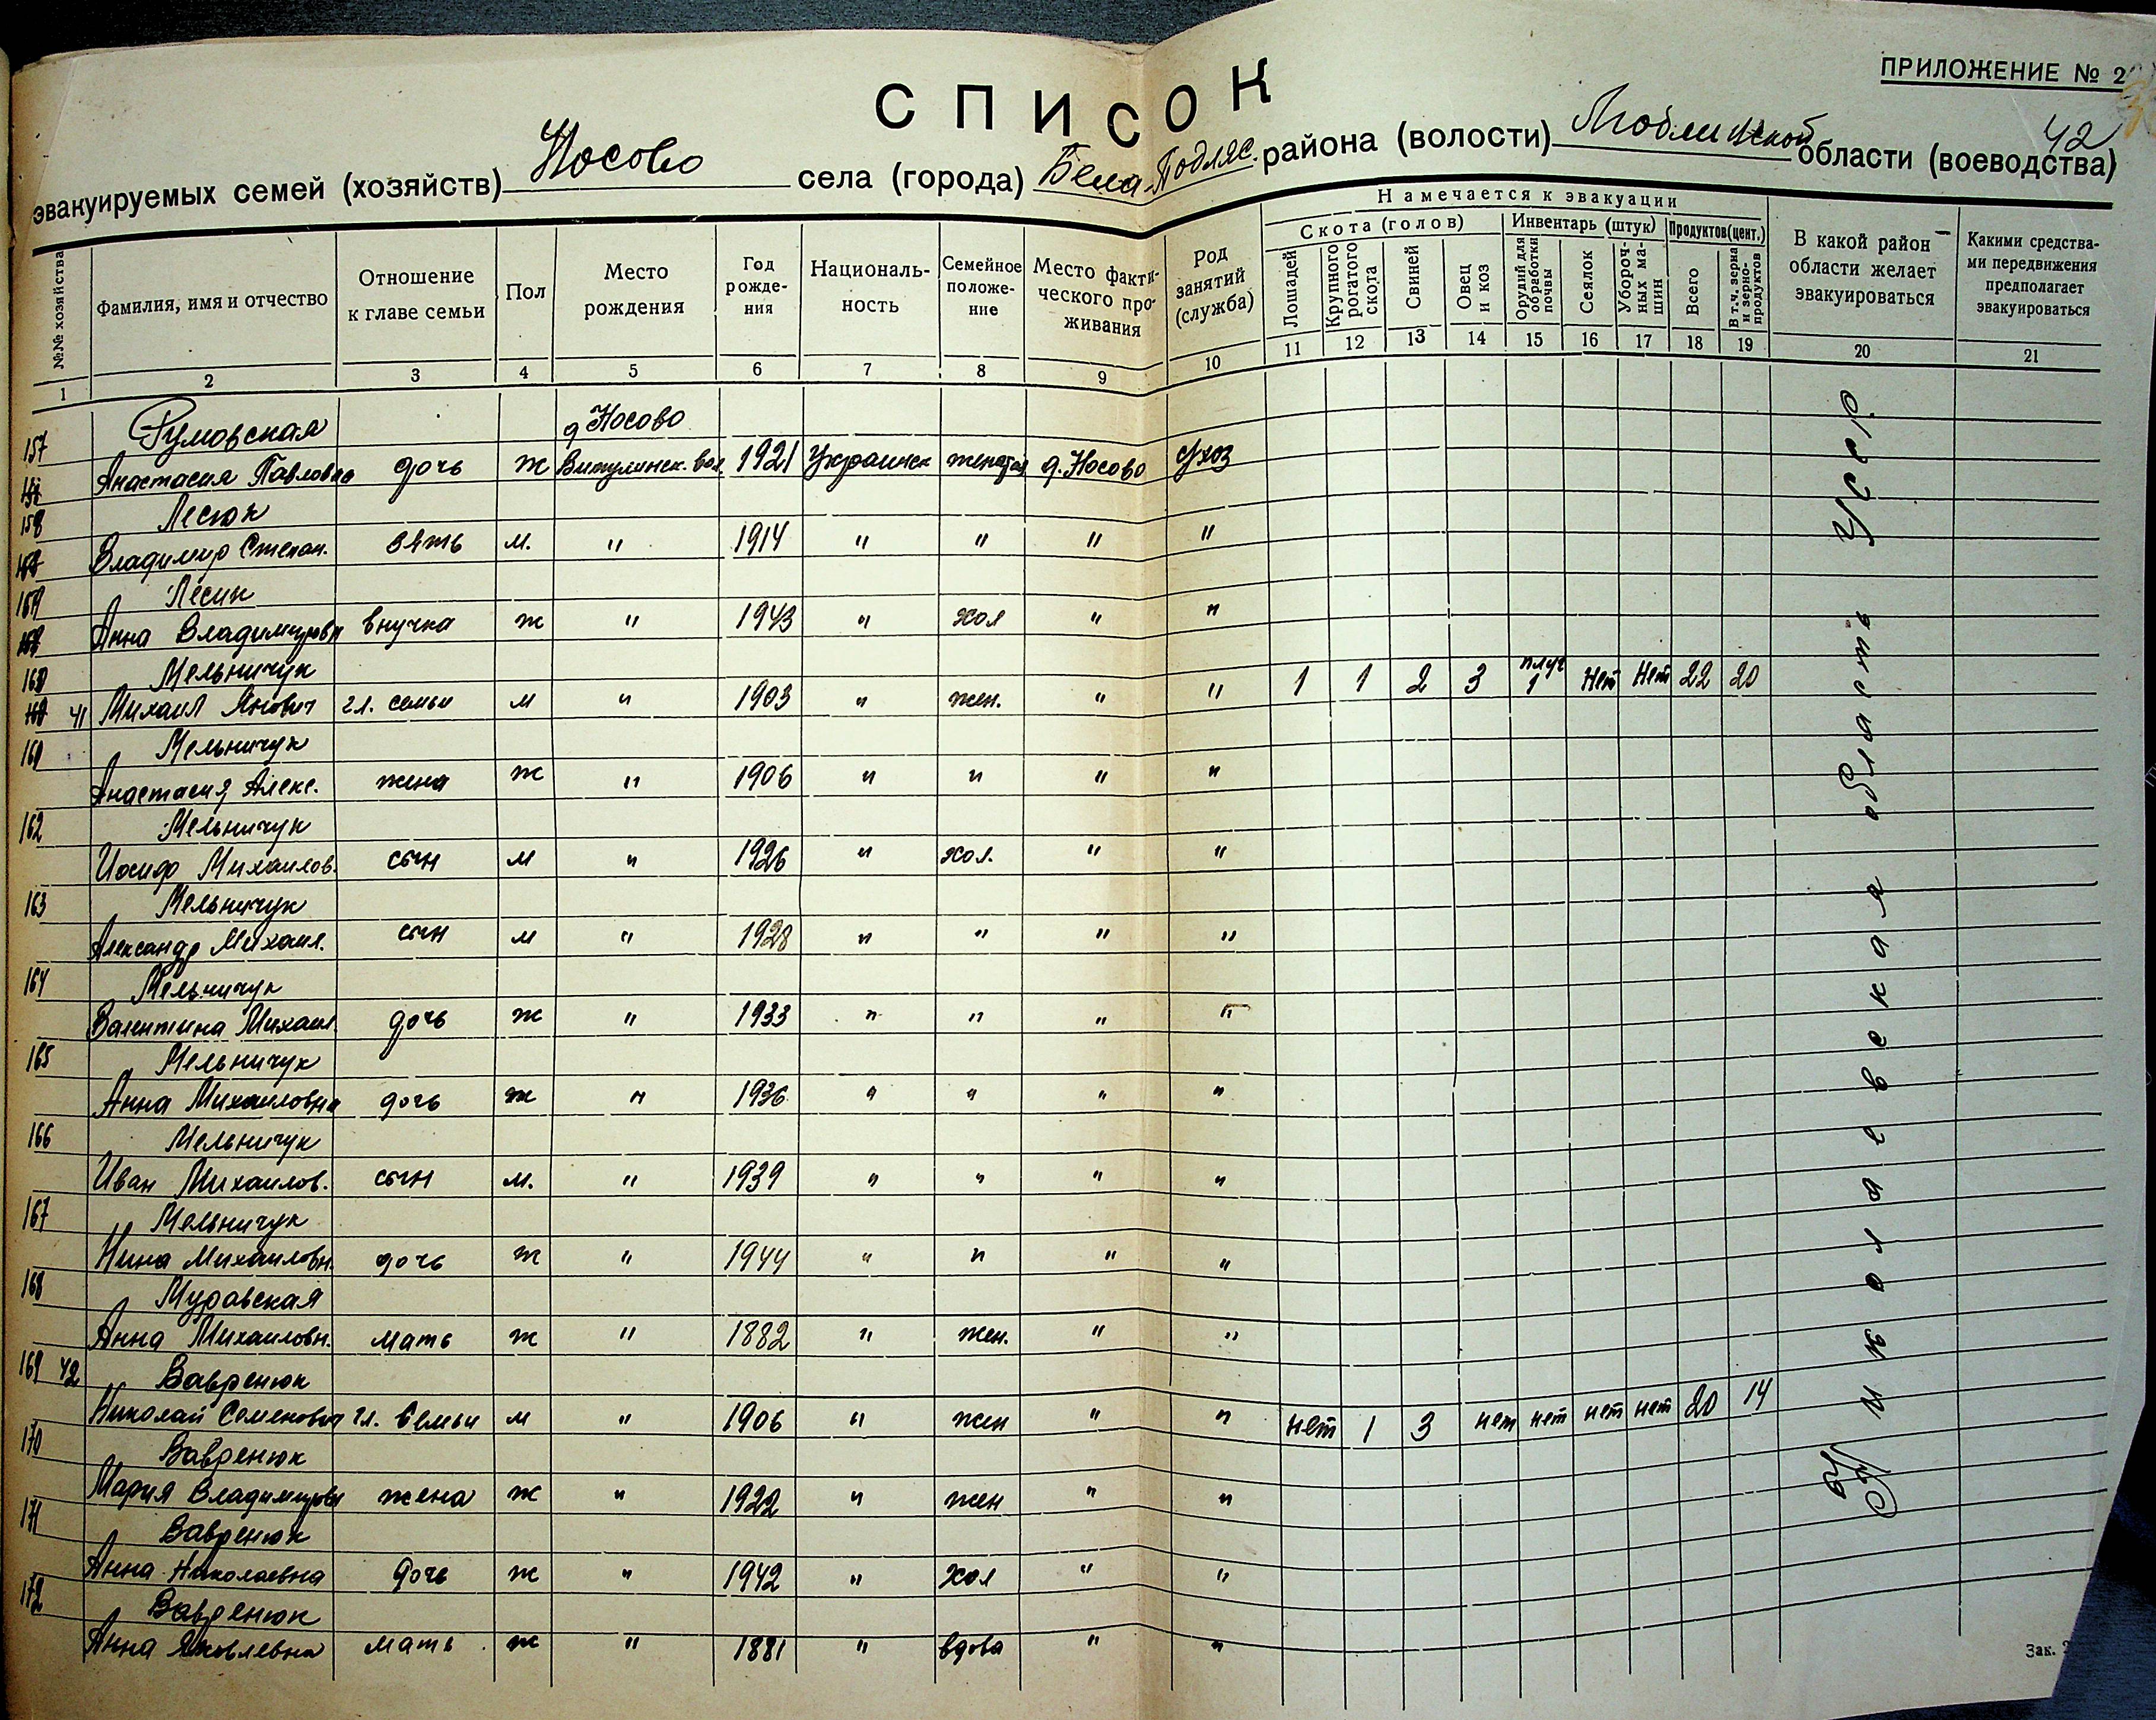 ПРИЛОЖЕНИЕ № 2
42
СПИСОК
эвакуируемых семей (хозяйств) Носово села (города) Бела-Подляс. района (волости) Люблинской области (воеводства)
№№ хозяйства
Фамилия, имя и отчество
Отношение к главе семьи
Пол
Место рождения
Год рожде-ния
Националь-ность
Семейное положе-ние
Место факти-ческого про-живания
Род занятий (служба)
Намечается к эвакуации
Скота (голов)
Инвентарь (штук)
Продуктов (цент.)
Лошадей
Крупного рогатого скота
Свиней
Овец и коз
Орудий для обработки почвы
Сеялок
Убороч-ных ма-шин
Всего
В т. ч. зерна и зерно-продуктов
В какой район области желает эвакуироваться
Какими средства-ми передвижения предполагает эвакуироваться
1 2 3 4 5 6 7 8 9 10 11 12 13 14 15 16 17 18 19 20 21
157 Румовская д Носово
Анастасия Павловна дочь ж Витулинск. вол. 1921 Украинск женатая д. Носово с/хоз
158 Лесюк
Владимир Степан. зять м. " 1914 " " " "
159 Лесик
Анна Владимировн внучка ж " 1943 " хол " "
160 Мельничук
41 Михаил Янович гл. семьи м " 1903 " жен. " " 1 1 2 3 плуг 1 Нет Нет 22 20
161 Мельничук
Анастасия Алекс. жена ж " 1906 " " " "
162 Мельничук
Иосиф Михаилов. сын м " 1926 " хол. " "
163 Мельничук
Александр Михаил. сын м " 1928 " " " "
164 Мельничук
Валентина Михаил. дочь ж " 1933 " " " "
165 Мельничук
Анна Михаиловна дочь ж " 1936 " " " "
166 Мельничук
Иван Михаилов. сын м. " 1939 " " " "
167 Мельничук
Нина Михаиловн. дочь ж " 1944 " " " "
168 Муравская
Анна Михаиловн. мать ж " 1882 " жен. " "
169 42 Вавренюк
Николай Семенович гл. семьи м " 1906 " жен " " нет 1 3 нет нет нет нет 20 14
170 Вавренюк
Мария Владимировн жена ж " 1922 " жен " "
171 Вавренюк
Анна Николаевна дочь ж " 1942 " хол " "
172 Вавренюк
Анна Яковлевна мать ж " 1881 " вдова " "
Зак.